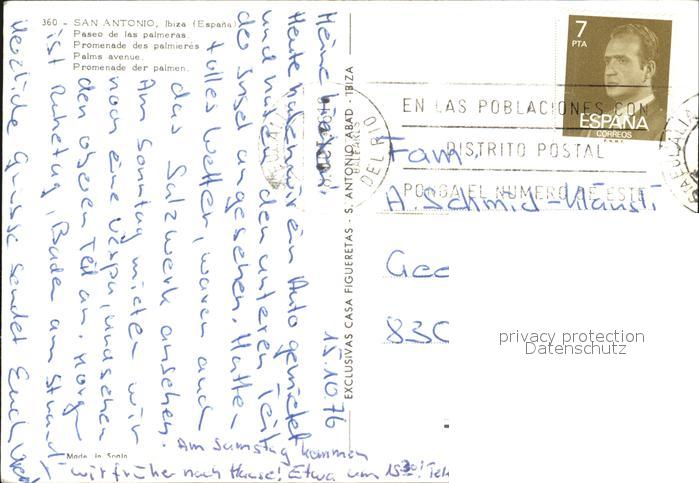 360 - SAN ANTONIO, Ibiza (España)
Paseo de las palmeras.
Promenade des palmiers
Palms avenue.
Promenade der palmen.
15.10.76
Heute haben wir ein Auto gemietet
und haben den unteren Teil
der Insel angesehen. Hatten
tolles Wetter, waren auch
das Salzwerk ansehen.
Am Sonntag mieten wir
noch eine Vespa, und sehen
den oberen Teil an. Morgen
ist Ruhetag, Baden am Strand!
Herzliche Grüsse sendet Euch
Am Samstag kommen
wir früher nach Hause! Etwa um
Made in Spain
EXCLUSIVAS CASA FIGUERETAS - S. ANTONIO ABAD - IBIZA
7
PTA
ESPAÑA
CORREOS
F.N.M.T.
EN LAS POBLACIONES CON
DISTRITO POSTAL
PONGA EL NUMERO DE ESTE
Fam.
A. Schmid-
830
privacy protection
Datenschutz